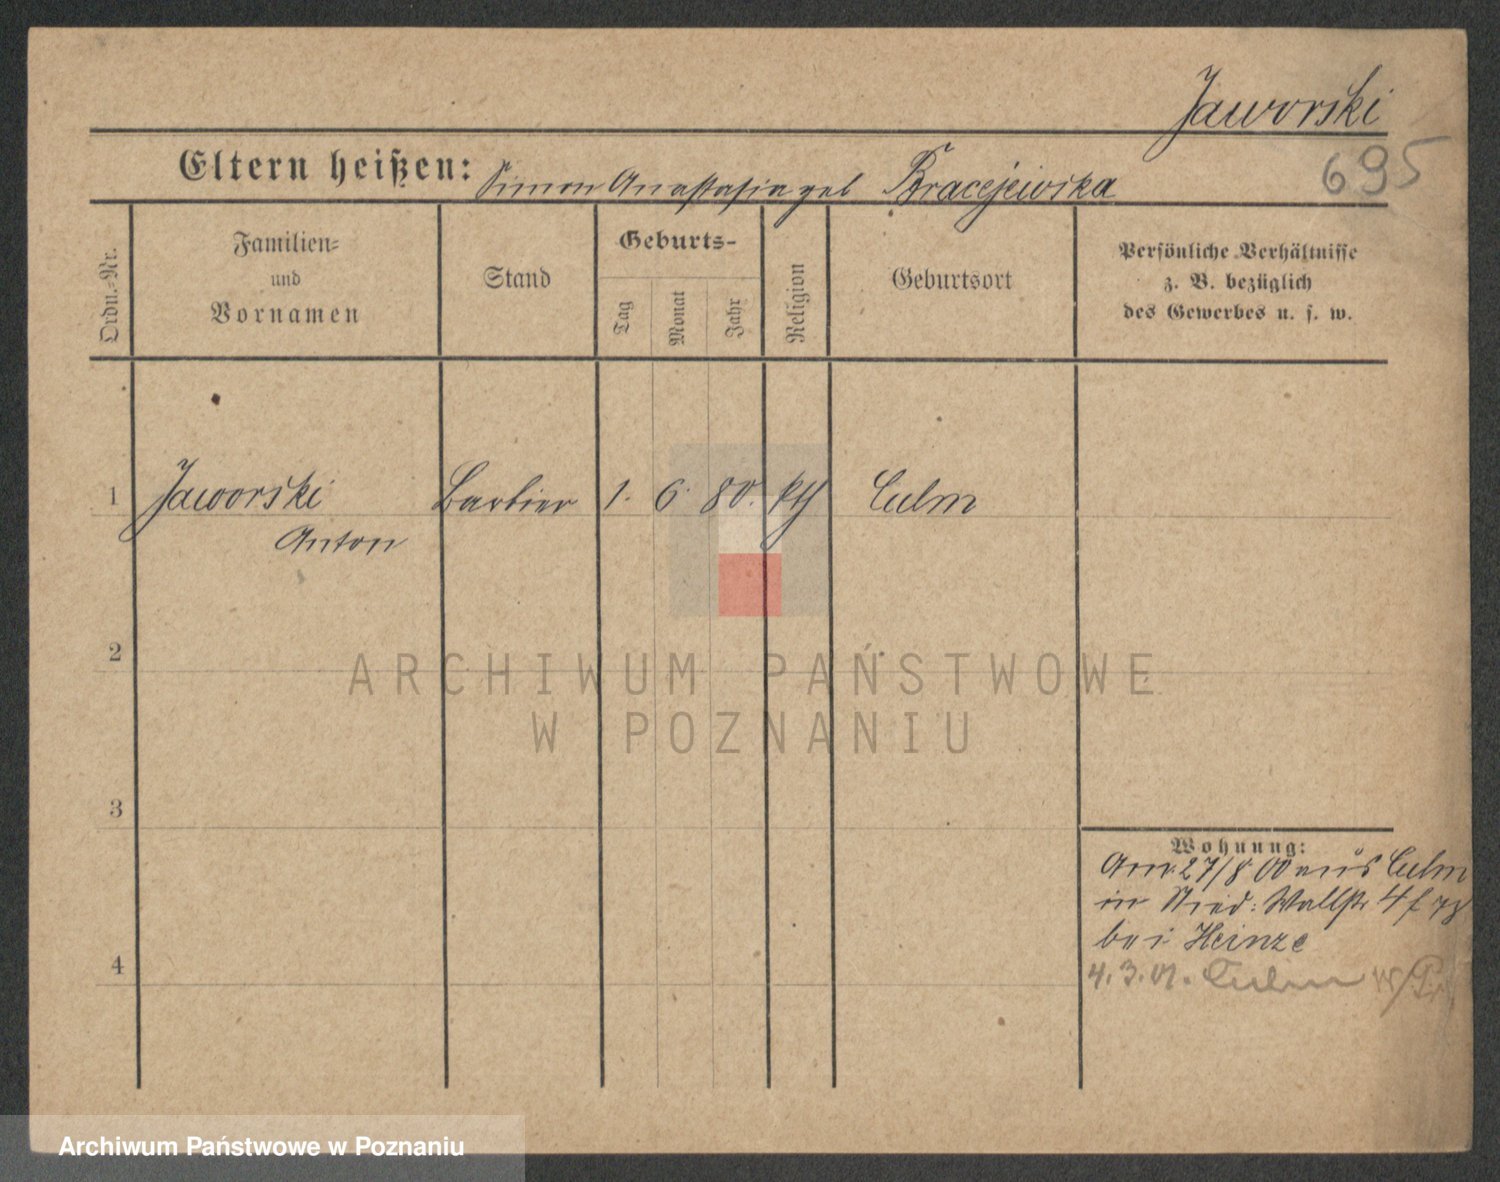 Jaworski
695
Eltern heißen: Simon Anastasia geb Bracejewska
Ordn.-Nr.
Familien-
und
Vornamen
Stand
Geburts-
Tag
Monat
Jahr
Religion
Geburtsort
Persönliche Verhältnisse
z. B. bezüglich
des Gewerbes u. s. w.
1 Jaworski Barbier 1. 6. 80. kth Culm
Anton
2
3
4
Wohnung:
Am 27/8 00 aus Culm
in Wallstr 4
bei Heinze
4.3.01. Culm W/Pr
ARCHIWUM PAŃSTWOWE
W POZNANIU
Archiwum Państwowe w Poznaniu